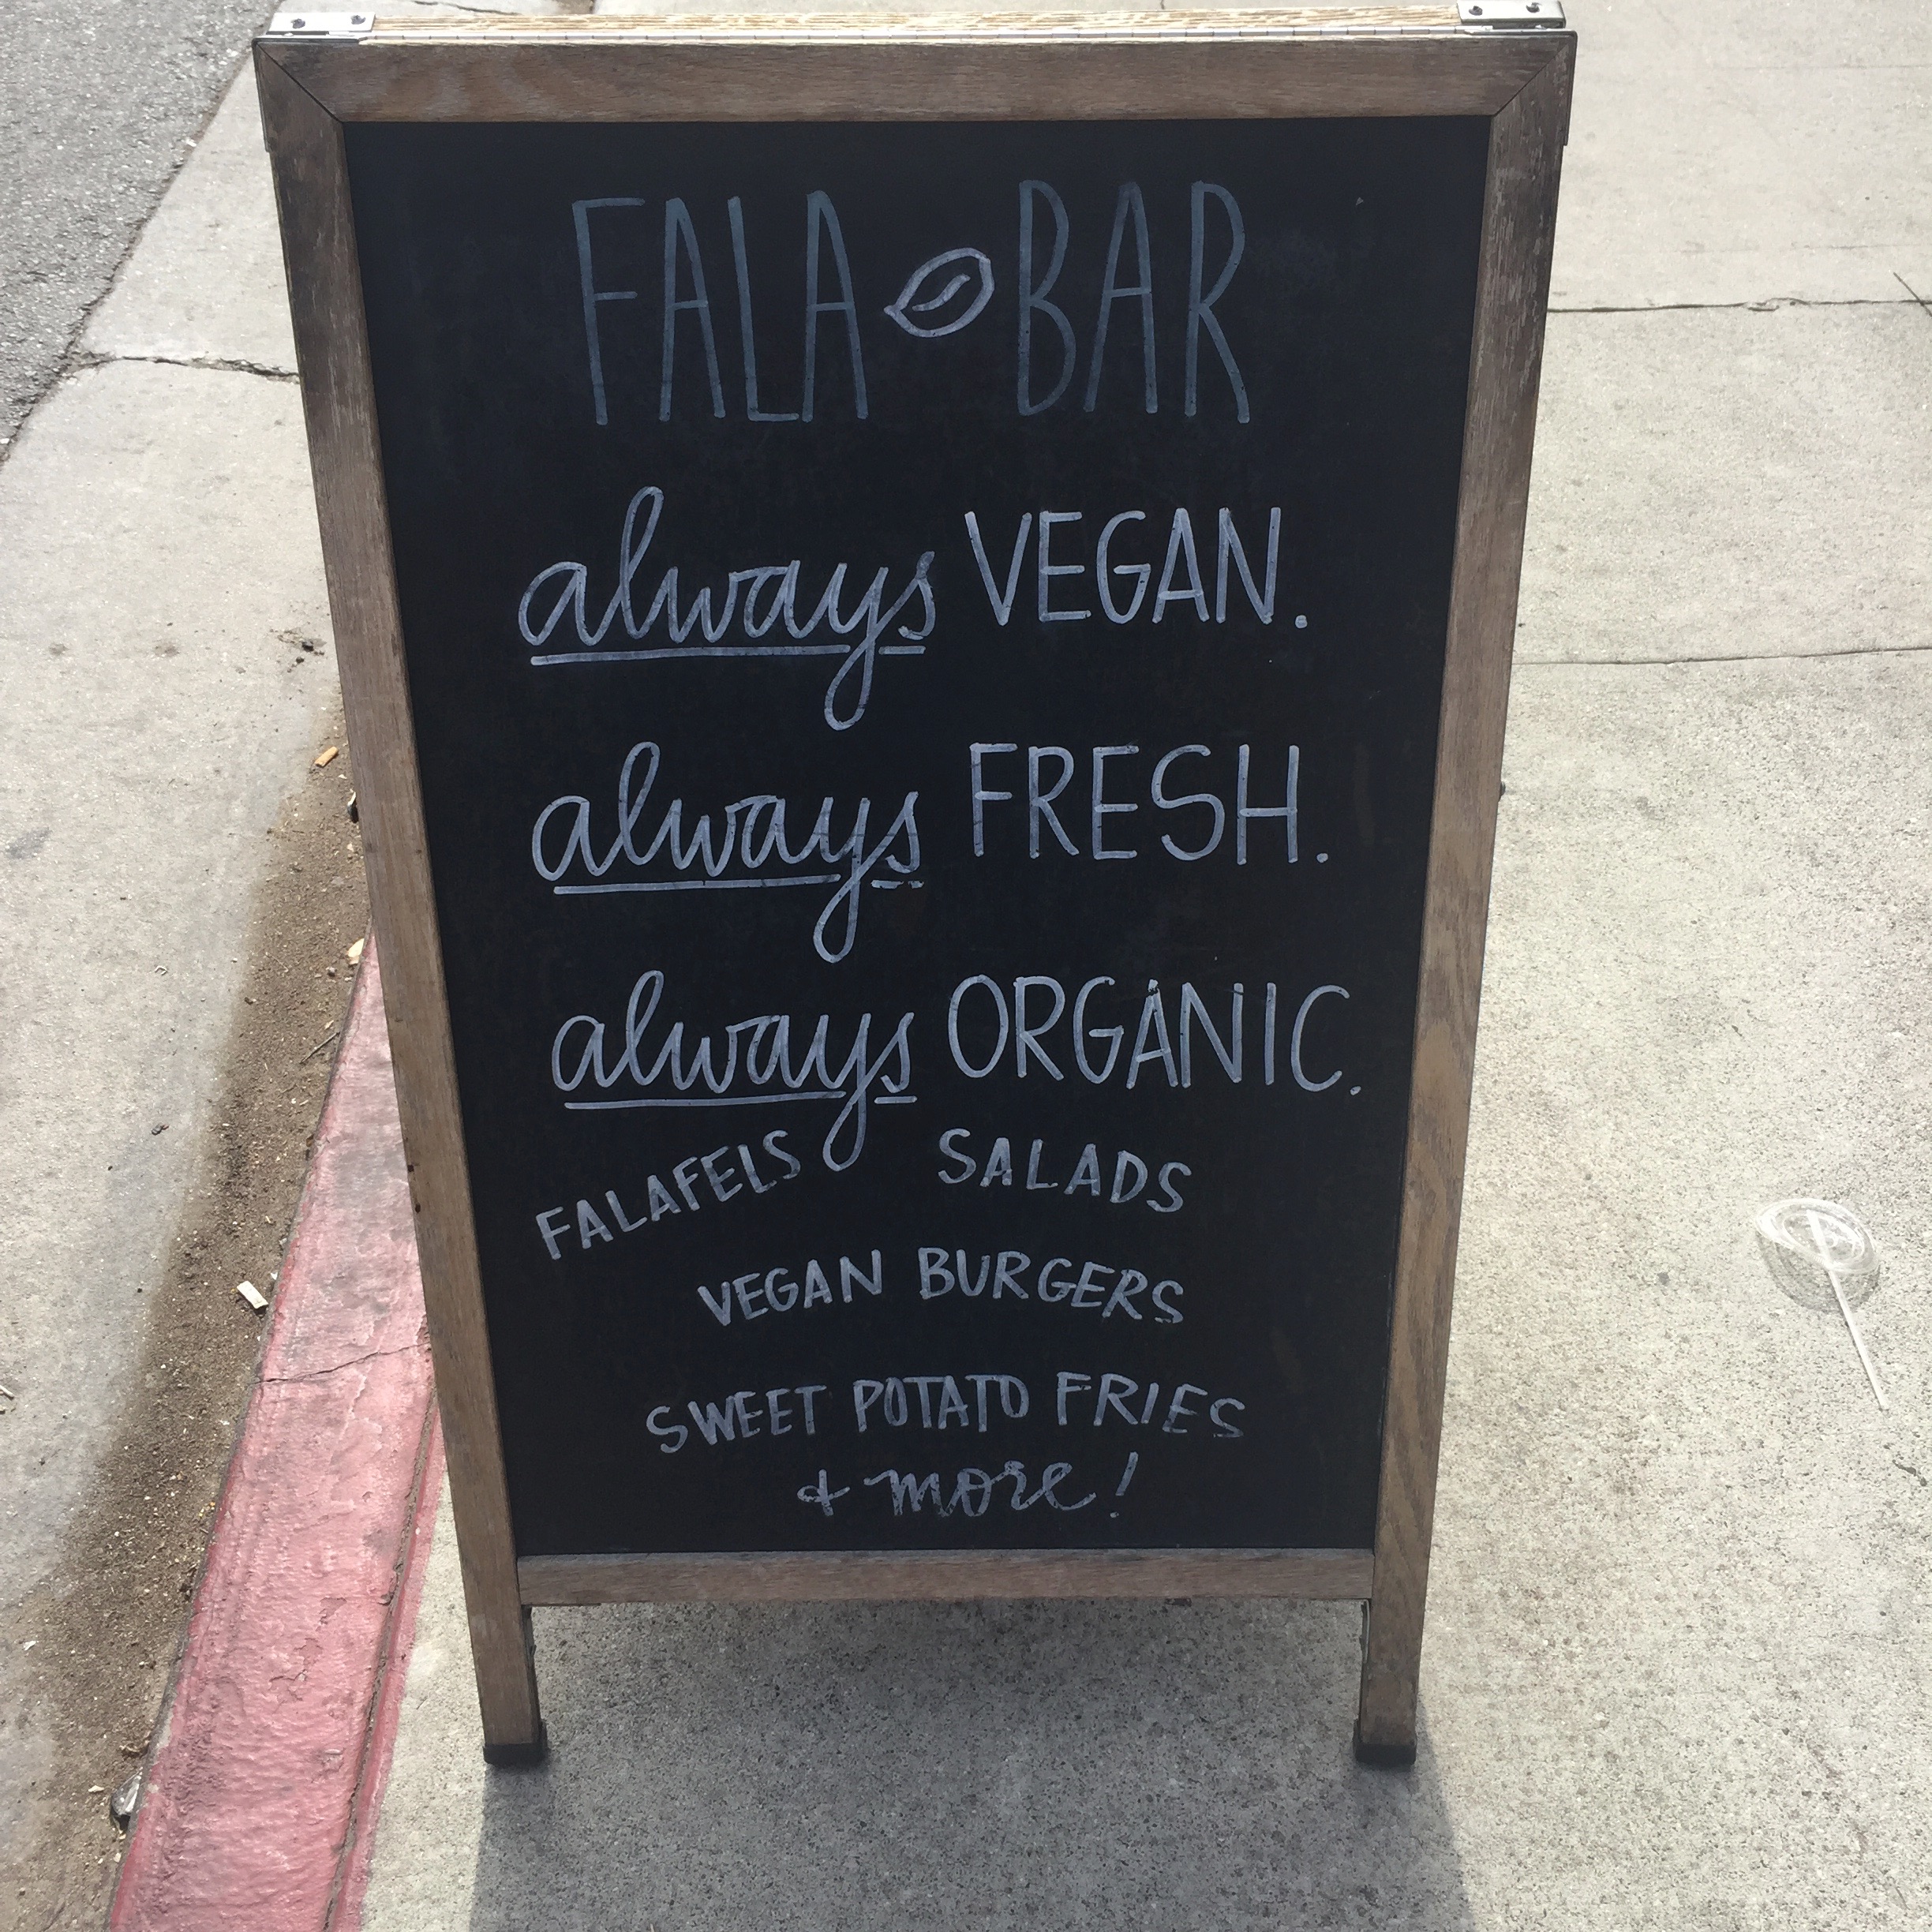 FALA BAR
always VEGAN.
always FRESH.
always ORGANIC.
FALAFELS SALADS
VEGAN BURGERS
SWEET POTATO FRIES
+ more!